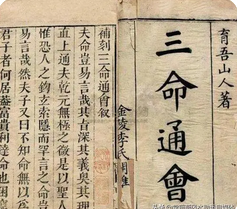 育吾山人著
三命通會
金陵李氏
補刻三命通會叙
夫命豈易言哉其旨深其義奥其理
直上通夫乾元無極之微是以聖人
惟恐人之鈎玄索隱而罕言之命豈
易言哉然夫子又曰不知命無以爲
君子者何居蓋富貴利達命也